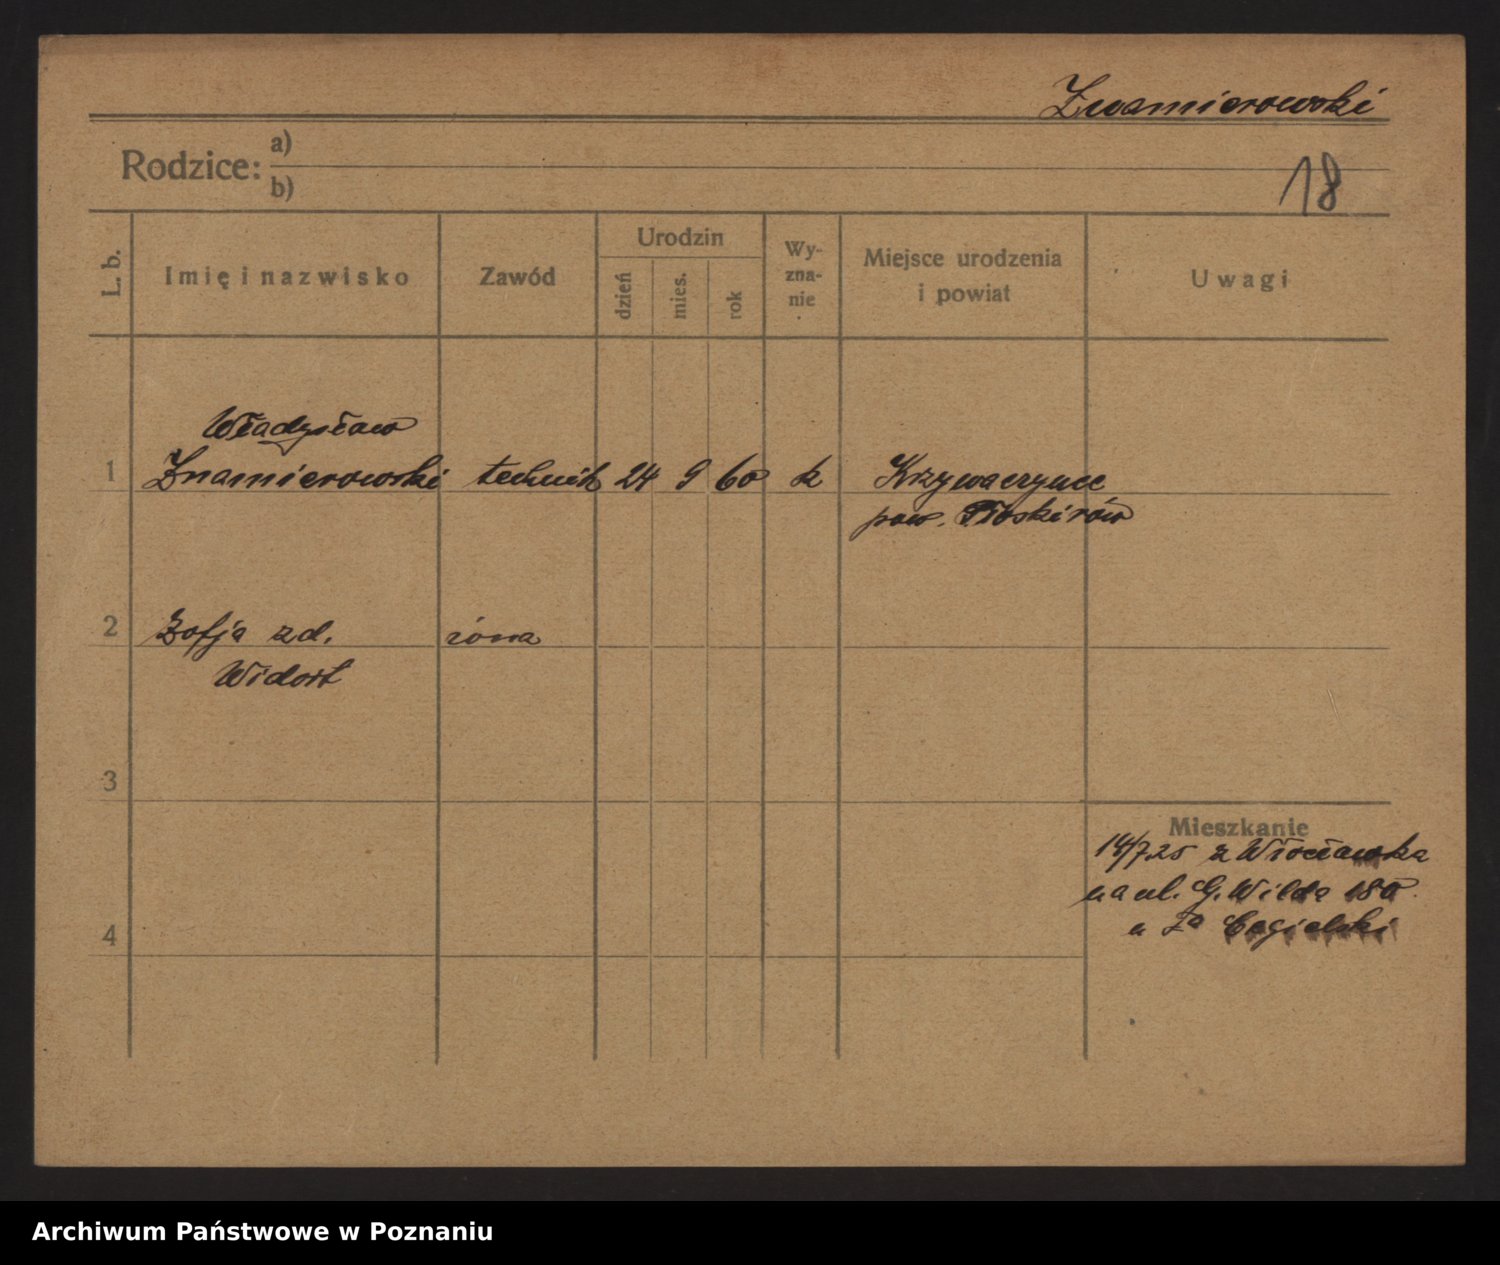 Znamierowski
Rodzice: a)
b)
18
L. b.
Imię i nazwisko
Zawód
Urodzin
dzień
mies.
rok
Wy-
zna-
nie
Miejsce urodzenia
i powiat
Uwagi
Władysław
1 Znamierowski technik 24 9 60 k Krzywaczynce
pow. Płoskirów
2 Zofja zd. żona
Widort
3
Mieszkanie
14/7.25 z Włocławka
na ul. G. Wilda 180
4
u Cegielski
Archiwum Państwowe w Poznaniu